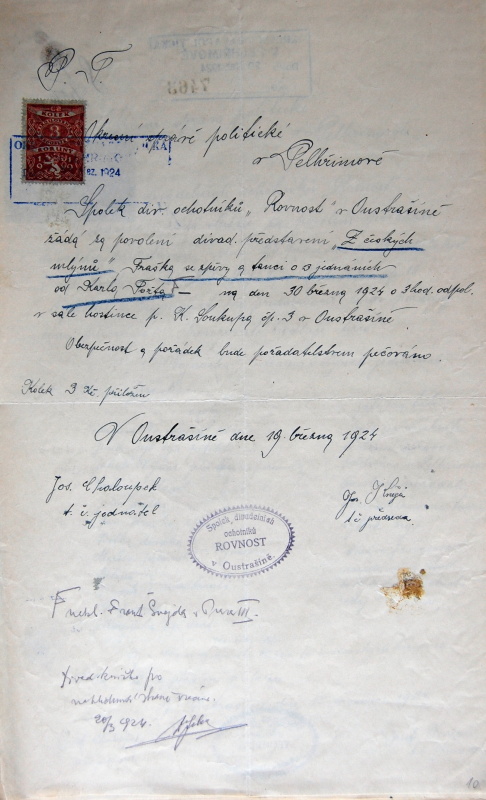 P. T.
7463
KOLEK
3
KORUNY
bz. 1924
Okresní správě politické
v Pelhřimově
Spolek div. ochotníků „Rovnost" v Oustrašíně
žádá za povolení divad. představení „Z českých
mlýnů" Fraška se zpěvy a tanci o 3 jednáních
od Karla Fořta — na den 30 března 1924 o 3 hod. odpol.
v sále hostince p. K. Soukupa čp. 3 v Oustrašíně.
Obezpečnost a pořádek bude pořadatelstvem pečováno.
Kolek 3 Kč přiložen
V Oustrašíně dne 19. března 1924
Jos. Chaloupek
t. č. jednatel
Jos.
t č. předseda
Spolek divadelních
ochotníků
ROVNOST
v Oustrašíně
Frant. Švejda v III.
20/3 1924.
10